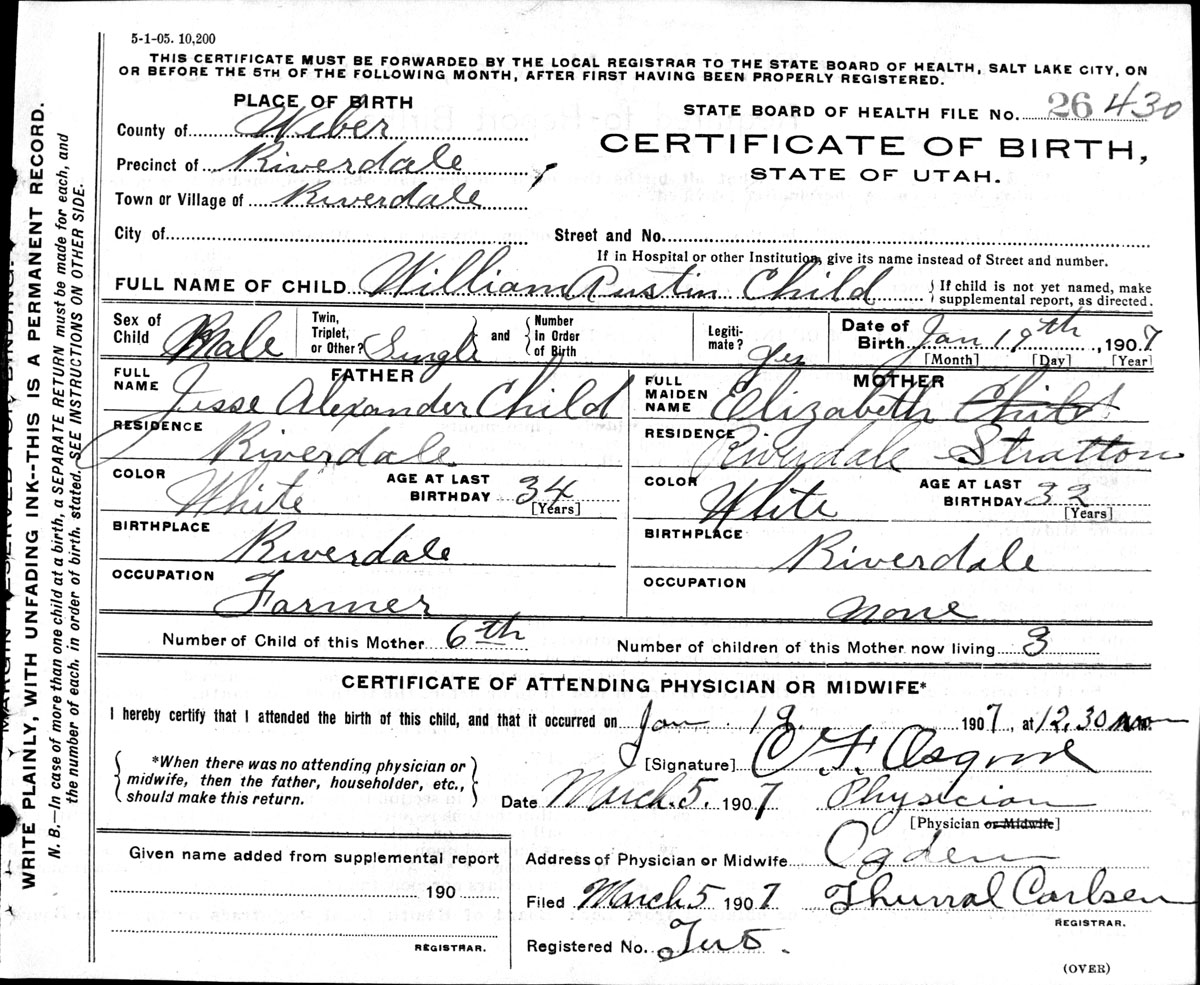 5-1-05. 10,200
THIS CERTIFICATE MUST BE FORWARDED BY THE LOCAL REGISTRAR TO THE STATE BOARD OF HEALTH, SALT LAKE CITY, ON
OR BEFORE THE 5TH OF THE FOLLOWING MONTH, AFTER FIRST HAVING BEEN PROPERLY REGISTERED.
PLACE OF BIRTH
STATE BOARD OF HEALTH FILE No. 26 430
County of Weber
CERTIFICATE OF BIRTH,
STATE OF UTAH.
Precinct of Riverdale
Town or Village of Riverdale
City of
Street and No.
If in Hospital or other Institution, give its name instead of Street and number.
FULL NAME OF CHILD William Austin Child { If child is not yet named, make
supplemental report, as directed.
Sex of Child Male
Twin, Triplet, or Other? Single and { Number in Order of Birth
Legiti-mate? Yes
Date of Birth Jan 19th, 1907
[Month] [Day] [Year]
FATHER
FULL NAME Jesse Alexander Child
RESIDENCE Riverdale
COLOR White AGE AT LAST BIRTHDAY 34
[Years]
BIRTHPLACE Riverdale
OCCUPATION Farmer
MOTHER
FULL MAIDEN NAME Elizabeth Child Stratton
RESIDENCE Riverdale
COLOR White AGE AT LAST BIRTHDAY 32
[Years]
BIRTHPLACE Riverdale
OCCUPATION None
Number of Child of this Mother 6th Number of children of this Mother now living 3
CERTIFICATE OF ATTENDING PHYSICIAN OR MIDWIFE*
I hereby certify that I attended the birth of this child, and that it occurred on Jan. 19 1907, at 12.30
{ *When there was no attending physician or
midwife, then the father, householder, etc.,
should make this return. }
[Signature] C. F. Osgood
Date March. 5. 1907 Physician
[Physician or Midwife]
Address of Physician or Midwife Ogden
Filed March 5 1907 Thurral Carlsen
REGISTRAR.
Registered No. Two.
Given name added from supplemental report
190
REGISTRAR.
(OVER)
MARGIN RESERVED FOR BINDING.
WRITE PLAINLY, WITH UNFADING INK--THIS IS A PERMANENT RECORD.
N. B.—In case of more than one child at a birth, a SEPARATE RETURN must be made for each, and
the number of each, in order of birth, stated. SEE INSTRUCTIONS ON OTHER SIDE.